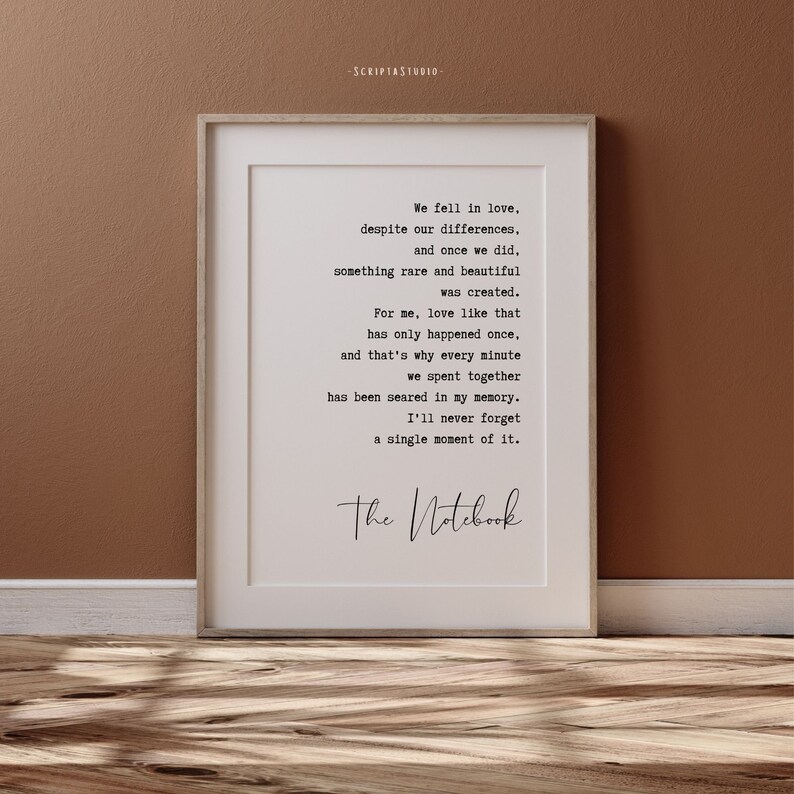 -ScriptaStudio-
We fell in love,
despite our differences,
and once we did,
something rare and beautiful
was created.
For me, love like that
has only happened once,
and that's why every minute
we spent together
has been seared in my memory.
I'll never forget
a single moment of it.
The Notebook